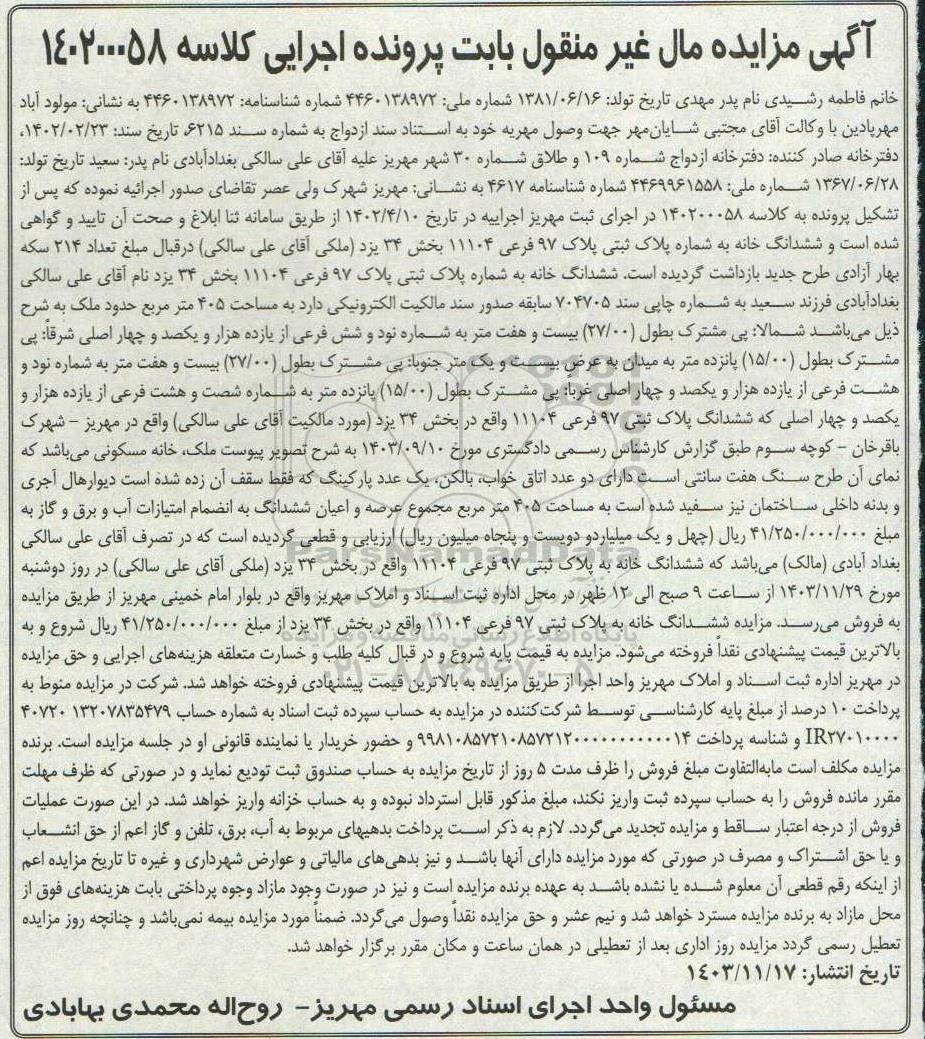 آگهی مزایده مال غیر منقول بابت پرونده اجرایی کلاسه ۱۴۰۲۰۰۰۵۸
خانم فاطمه رشیدی نام پدر مهدی تاریخ تولد: ۱۳۸۱/۰۶/۱۶ شماره ملی: ۴۴۶۰۱۳۸۹۷۲ شماره شناسنامه: ۴۴۶۰۱۳۸۹۷۲ به نشانی: مولود آباد
مهرپادین با وکالت آقای مجتبی شایان‌مهر جهت وصول مهریه خود به استناد سند ازدواج به شماره سند ۶۲۱۵، تاریخ سند: ۱۴۰۲/۰۲/۲۳،
دفترخانه صادر کننده: دفترخانه ازدواج شماره ۱۰۹ و طلاق شماره ۳۰ شهر مهریز علیه آقای علی سالکی بغدادآبادی نام پدر: سعید تاریخ تولد:
۱۳۶۷/۰۶/۲۸ شماره ملی: ۴۴۶۹۹۶۱۵۵۸ شماره شناسنامه ۴۶۱۷ به نشانی: مهریز شهرک ولی عصر تقاضای صدور اجرائیه نموده که پس از
تشکیل پرونده به کلاسه ۱۴۰۲۰۰۰۵۸ در اجرای ثبت مهریز اجراییه در تاریخ ۱۴۰۲/۴/۱۰ از طریق سامانه ثنا ابلاغ و صحت آن تایید و گواهی
شده است و ششدانگ خانه به شماره پلاک ثبتی پلاک ۹۷ فرعی ۱۱۱۰۴ بخش ۳۴ یزد (ملکی آقای علی سالکی) درقبال مبلغ تعداد ۲۱۴ سکه
بهار آزادی طرح جدید بازداشت گردیده است. ششدانگ خانه به شماره پلاک ثبتی پلاک ۹۷ فرعی ۱۱۱۰۴ بخش ۳۴ یزد نام آقای علی سالکی
بغدادآبادی فرزند سعید به شماره چاپی سند ۷۰۴۷۰۵ سابقه صدور سند مالکیت الکترونیکی دارد به مساحت ۴۰۵ متر مربع حدود ملک به شرح
ذیل می‌باشد شمالا: پی مشترک بطول (۲۷/۰۰) بیست و هفت متر به شماره نود و شش فرعی از یازده هزار و یکصد و چهار اصلی شرقاً: پی
مشترک بطول (۱۵/۰۰) پانزده متر به میدان به عرض بیست و یک متر جنوبا: پی مشترک بطول (۲۷/۰۰) بیست و هفت متر به شماره نود و
هشت فرعی از یازده هزار و یکصد و چهار اصلی غربا: پی مشترک بطول (۱۵/۰۰) پانزده متر به شماره شصت و هشت فرعی از یازده هزار و
یکصد و چهار اصلی که ششدانگ پلاک ثبتی ۹۷ فرعی ۱۱۱۰۴ واقع در بخش ۳۴ یزد (مورد مالکیت آقای علی سالکی) واقع در مهریز – شهرک
باقرخان – کوچه سوم طبق گزارش کارشناس رسمی دادگستری مورخ ۱۴۰۳/۰۹/۱۰ به شرح تصویر پیوست ملک، خانه مسکونی می‌باشد که
نمای آن طرح سنگ هفت سانتی است دارای دو عدد اتاق خواب، بالکن، یک عدد پارکینگ که فقط سقف آن زده شده است دیوارهال آجری
و بدنه داخلی ساختمان نیز سفید شده است به مساحت ۴۰۵ متر مربع مجموع عرصه و اعیان ششدانگ به انضمام امتیازات آب و برق و گاز به
مبلغ ۴۱/۲۵۰/۰۰۰/۰۰۰ ریال (چهل و یک میلیاردو دویست و پنجاه میلیون ریال) ارزیابی و قطعی گردیده است که در تصرف آقای علی سالکی
بغداد آبادی (مالک) می‌باشد که ششدانگ خانه به پلاک ثبتی ۹۷ فرعی ۱۱۱۰۴ واقع در بخش ۳۴ یزد (ملکی آقای علی سالکی) در روز دوشنبه
مورخ ۱۴۰۳/۱۱/۲۹ از ساعت ۹ صبح الی ۱۲ ظهر در محل اداره ثبت اسناد و املاک مهریز واقع در بلوار امام خمینی مهریز از طریق مزایده
به فروش می‌رسد. مزایده ششدانگ خانه به پلاک ثبتی ۹۷ فرعی ۱۱۱۰۴ واقع در بخش ۳۴ یزد از مبلغ ۴۱/۲۵۰/۰۰۰/۰۰۰ ریال شروع و به
بالاترین قیمت پیشنهادی نقداً فروخته می‌شود. مزایده به قیمت پایه شروع و در قبال کلیه طلب و خسارت متعلقه هزینه‌های اجرایی و حق مزایده
در مهریز اداره ثبت اسناد و املاک مهریز واحد اجرا از طریق مزایده به بالاترین قیمت پیشنهادی فروخته خواهد شد. شرکت در مزایده منوط به
پرداخت ۱۰ درصد از مبلغ پایه کارشناسی توسط شرکت‌کننده در مزایده به حساب سپرده ثبت اسناد به شماره حساب ۱۳۲۰۷۸۳۵۴۷۹ ۴۰۷۲۰
IR۲۷۰۱۰۰۰۰ و شناسه پرداخت ۹۹۸۱۰۸۵۷۲۱۰۸۵۷۲۱۲۰۰۰۰۰۰۰۰۰۰۰۱۴ و حضور خریدار یا نماینده قانونی او در جلسه مزایده است. برنده
مزایده مکلف است مابه‌التفاوت مبلغ فروش را ظرف مدت ۵ روز از تاریخ مزایده به حساب صندوق ثبت تودیع نماید و در صورتی که ظرف مهلت
مقرر مانده فروش را به حساب سپرده ثبت واریز نکند، مبلغ مذکور قابل استرداد نبوده و به حساب خزانه واریز خواهد شد. در این صورت عملیات
فروش از درجه اعتبار ساقط و مزایده تجدید می‌گردد. لازم به ذکر است پرداخت بدهیهای مربوط به آب، برق، تلفن و گاز اعم از حق انشعاب
و یا حق اشتراک و مصرف در صورتی که مورد مزایده دارای آنها باشد و نیز بدهی‌های مالیاتی و عوارض شهرداری و غیره تا تاریخ مزایده اعم
از اینکه رقم قطعی آن معلوم شده یا نشده باشد به عهده برنده مزایده است و نیز در صورت وجود مازاد وجوه پرداختی بابت هزینه‌های فوق از
محل مازاد به برنده مزایده مسترد خواهد شد و نیم عشر و حق مزایده نقداً وصول می‌گردد. ضمناً مورد مزایده بیمه نمی‌باشد و چنانچه روز مزایده
تعطیل رسمی گردد مزایده روز اداری بعد از تعطیلی در همان ساعت و مکان مقرر برگزار خواهد شد.
تاریخ انتشار: ۱۴۰۳/۱۱/۱۷
مسئول واحد اجرای اسناد رسمی مهریز– روح‌اله محمدی بهابادی
ParsNamadData
پایگاه اطلاع رسانی مناقصه و مزایده